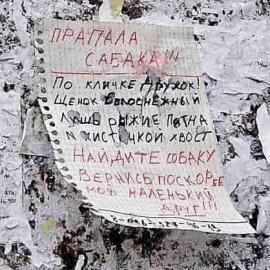 ПРАПАЛА
САБАКА!!!
По кличке Дружок!
Щенок белоснежный
лишь рыжие пятна
и кисточкой хвост
НАЙДИТЕ СОБАКУ
ВЕРНИСЬ ПОСКОРЕЕ
МОЙ МАЛЕНЬКИЙ
ДРУГ!!!